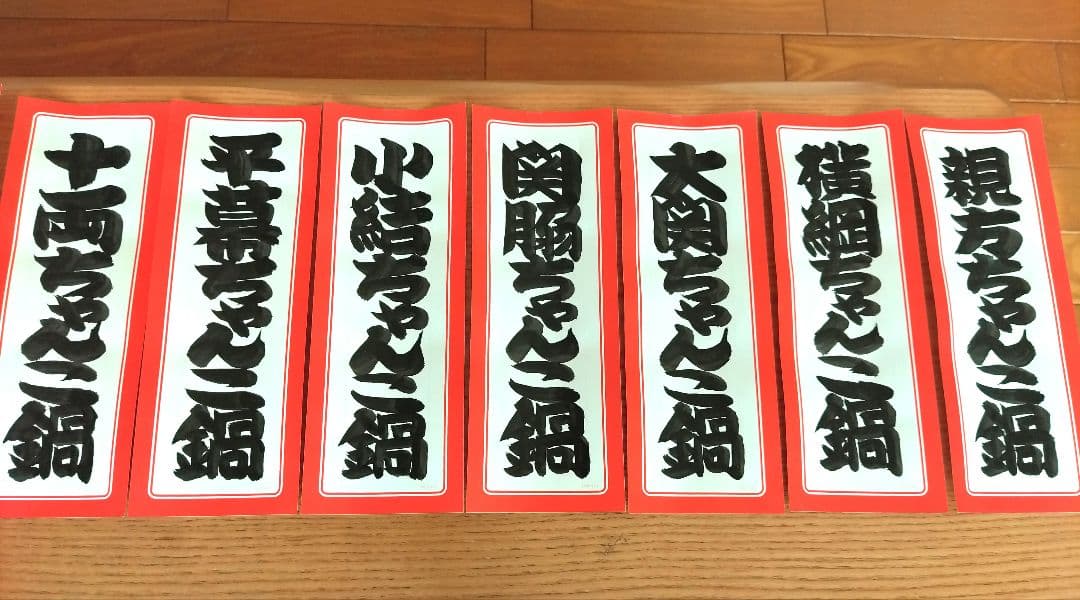 親方ちゃんこ鍋
横綱ちゃんこ鍋
大関ちゃんこ鍋
関脇ちゃんこ鍋
小結ちゃんこ鍋
平幕ちゃんこ鍋
十両ちゃんこ鍋